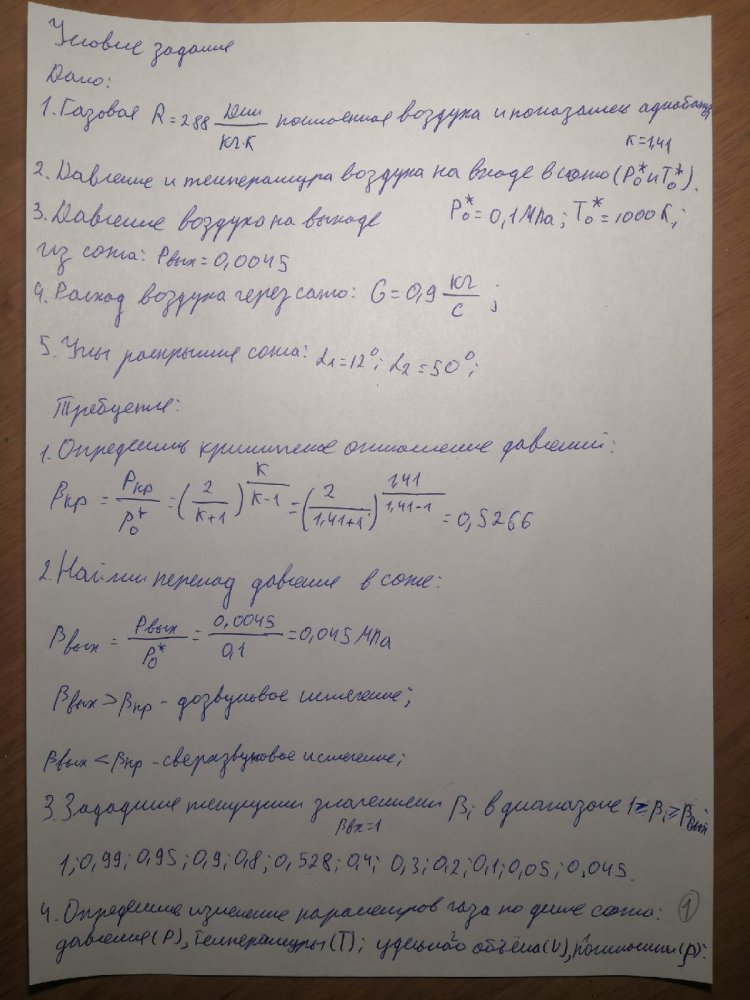 Условие задание
Дано:
1. Газовая R=288 Дж/кг·К постоянная воздуха и показатель адиабаты
K=1,41
2. Давление и температура воздуха на входе в сопло (P₀* и T₀*).
3. Давление воздуха на выходе P₀*=0,1 МПа; T₀*=1000 К;
из сопла: Pвых=0,0045
4. Расход воздуха через сопло: G=0,9 кг/с;
5. Углы раскрытия сопла: α₁=12°; α₂=50°;
Требуется:
1. Определить критическое отношение давлений:
βкр = Pкр/P₀* = (2/(K+1))^(K/(K-1)) = (2/(1,41+1))^(1,41/(1,41-1)) = 0,5266
2. Найти перепад давление в сопле:
βвых = Pвых/P₀* = 0,0045/0,1 = 0,045 МПа
βвых > βкр - дозвуковое истечение;
βвых < βкр - сверхзвуковое истечение;
3. Зададимся текущими значениями βi в диапазоне 1 ≥ βi ≥ βвых
βвх=1
1; 0,99; 0,95; 0,9; 0,8; 0,528; 0,4; 0,3; 0,2; 0,1; 0,05; 0,045.
4. Определить изменение параметров газа по длине сопла: 1
давления (P), температуры (T); удельного объёма (υ), плотности (ρ):